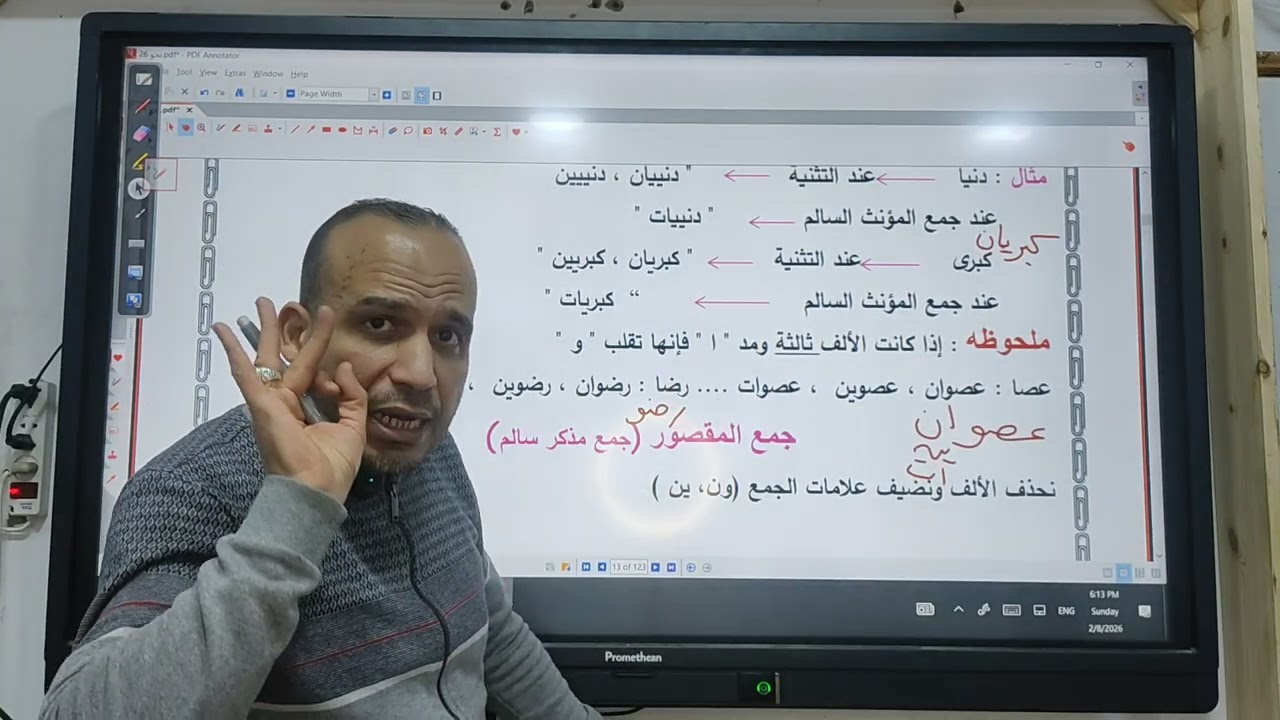 نحو 26.pdf* - PDF Annotator
Tool View Extras Window Help
Page Width
.pdf* ×
مثال : دنيا ← عند التثنية ← " دنييان ، دنييين
عند جمع المؤنث السالم ← " دنييات "
كبريان
كبرى ← عند التثنية ← " كبريان ، كبريين "
عند جمع المؤنث السالم ← “ كبريات "
ملحوظه : إذا كانت الألف ثالثة ومد " ا " فإنها تقلب " و "
عصا : عصوان ، عصوين ، عصوات .... رضا : رضوان ، رضوين ،
رضو
عصوان
ين
ات
جمع المقصور (جمع مذكر سالم)
نحذف الألف ونضيف علامات الجمع (ون، ين )
13 of 123
6:13 PM
ENG Sunday
2/8/2026
Promethean